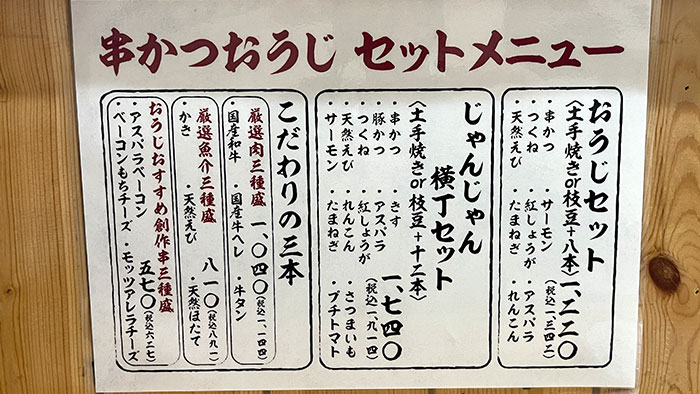 串かつおうじ セットメニュー
おうじセット
〈土手焼きor枝豆+八本〉
一、二二〇
(税込一、三四二)
・串かつ ・サーモン ・アスパラ
・つくね ・紅しょうが ・れんこん
・天然えび ・たまねぎ
じゃんじゃん
横丁セット
〈土手焼きor枝豆+十二本〉
一、七四〇
(税込一、九一四)
・串かつ ・きす ・さつまいも
・豚かつ ・アスパラ ・プチトマト
・つくね ・紅しょうが
・天然えび ・れんこん
・サーモン ・たまねぎ
こだわりの三本
厳選肉三種盛 一、〇四〇(税込一、一四四)
・国産和牛 ・国産牛ヘレ ・牛タン
厳選魚介三種盛 八一〇(税込八九一)
・かき ・天然えび ・天然ほたて
おうじおすすめ創作串三種盛
五七〇(税込六二七)
・アスパラベーコン
・ベーコンもちチーズ ・モッツァレラチーズ